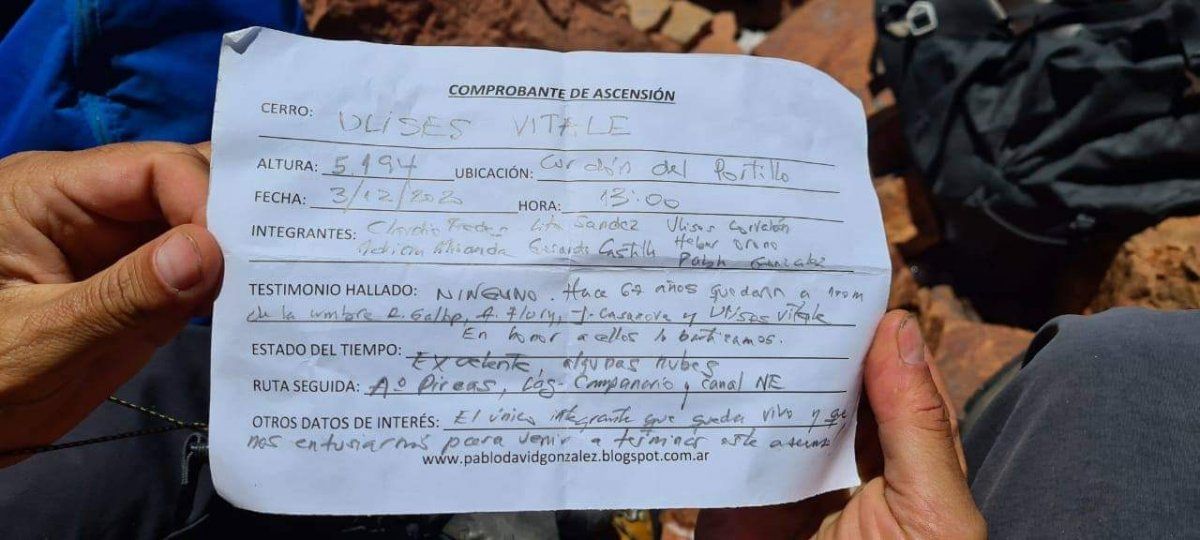 COMPROBANTE DE ASCENSIÓN
CERRO: ULISES VITALE
ALTURA: 5.194 UBICACIÓN: Cordón del Portillo
FECHA: 3/12/2020 HORA: 13:00
INTEGRANTES: Claudio Fredes Lito Sandez Ulises Corvalán
Miranda Gerardo Castillo Heber Orono Pablo Gonzalez
TESTIMONIO HALLADO: NINGUNO. Hace 67 años quedaron a 100m
de la cumbre E. Galhp, A. Flory, J. Casanova y Ulises Vitale
En honor a ellos lo bautizamos.
ESTADO DEL TIEMPO: Excelente, algunas nubes
RUTA SEGUIDA: Aº Pircas, Lag. Campanario y canal NE
OTROS DATOS DE INTERÉS: El único integrante que queda vivo y que
nos entusiarmó para venir a terminar este ascenso
www.pablodavidgonzalez.blogspot.com.ar